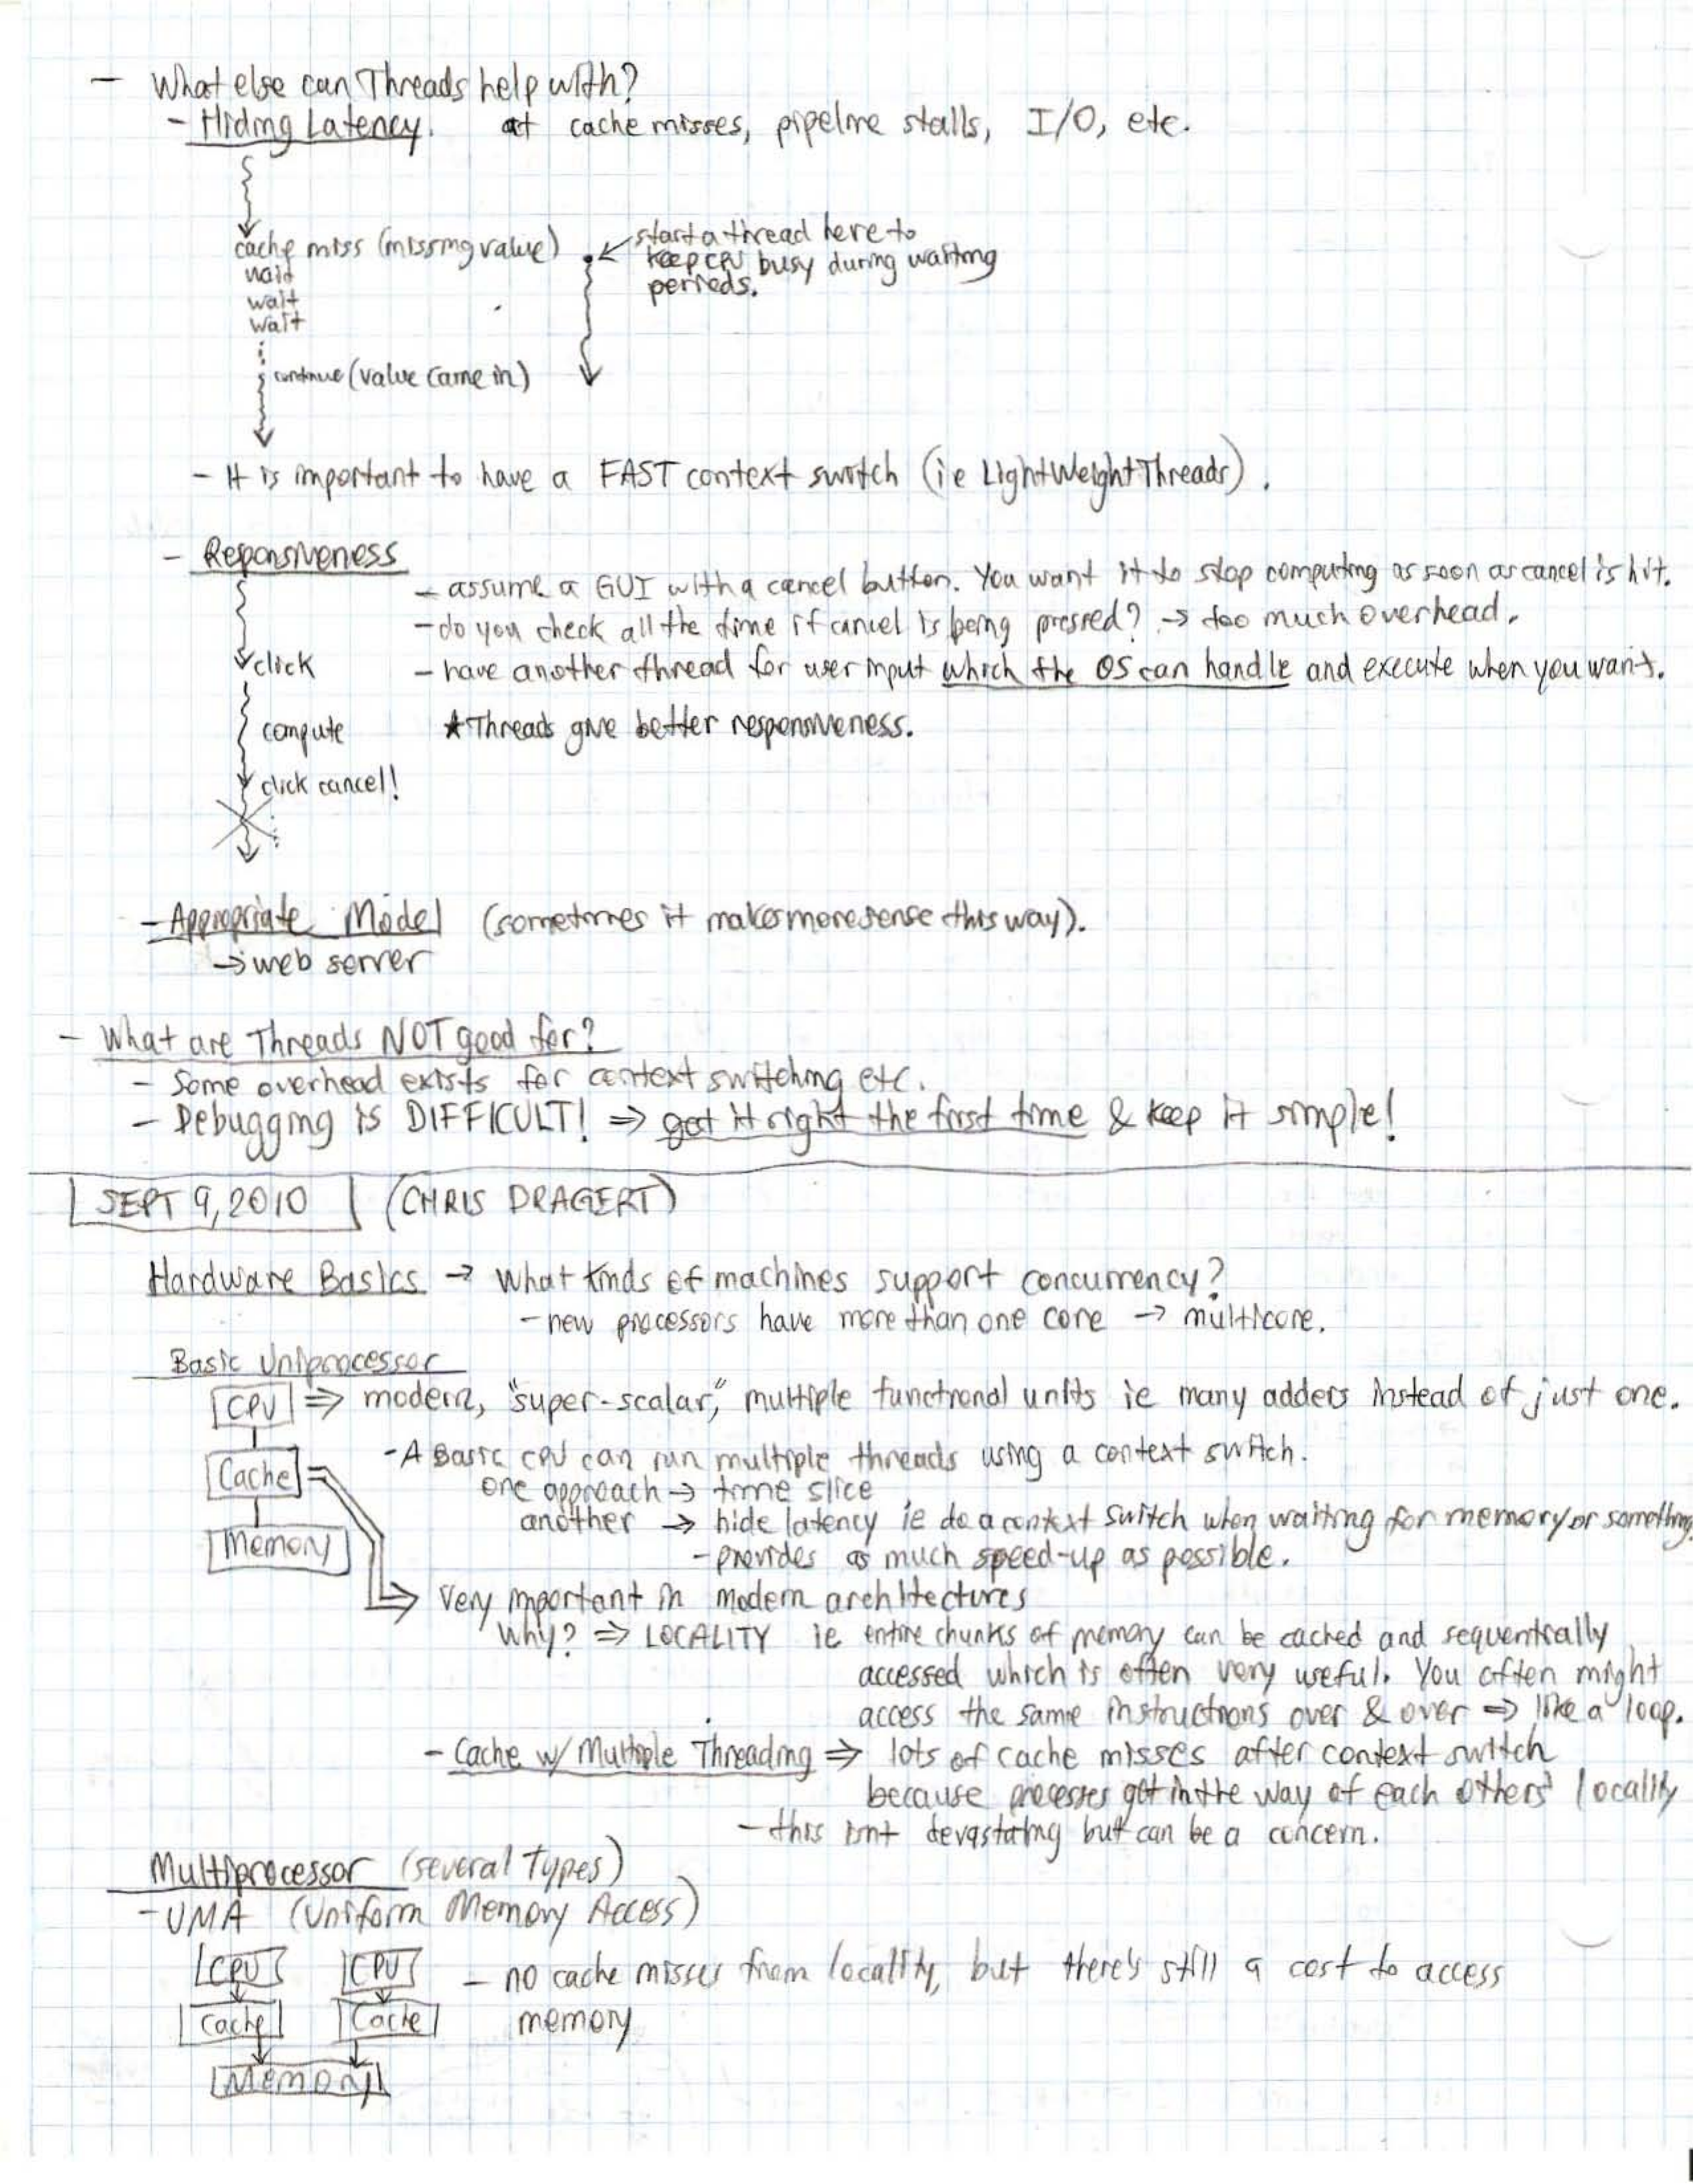 - What else can Threads help with?
- Hiding Latency. at cache misses, pipeline stalls, I/O, etc.
cache miss (missing value)
wait
wait
wait
continue (value came in)
start a thread here to
keep CPU busy during waiting
periods.
- It is important to have a FAST context switch (ie LightWeightThreads).
- Reponsiveness
- assume a GUI with a cancel button. You want it to stop computing as soon as cancel is hit.
- do you check all the time if cancel is being pressed? → too much overhead.
click
- have another thread for user input which the OS can handle and execute when you want.
compute
* Threads give better responsiveness.
click cancel!
- Appropriate Model (sometimes it makes more sense this way).
→ web server
- What are Threads NOT good for?
- Some overhead exists for context switching etc.
- Debugging is DIFFICULT! ⇒ get it right the first time & keep it simple!
SEPT 9, 2010 (CHRIS DRAGERT)
Hardware Basics → What kinds of machines support concurrency?
- new processors have more than one core → multicore.
Basic Uniprocessor
CPU ⇒ modern, "super-scalar," multiple functional units ie many adders instead of just one.
- A Basic CPU can run multiple threads using a context switch.
Cache
one approach → time slice
another → hide latency ie do a context switch when waiting for memory or something.
Memory
- provides as much speed-up as possible.
Very important in modern architectures
Why? ⇒ LOCALITY ie entire chunks of memory can be cached and sequentially
accessed which is often very useful. You often might
access the same instructions over & over ⇒ like a loop.
- Cache w/ Multiple Threading ⇒ lots of cache misses after context switch
because processes get in the way of each others' locality
- this isnt devastating but can be a concern.
Multiprocessor (several Types)
- UMA (Uniform Memory Access)
CPU CPU - no cache misses from locality, but there's still a cost to access
Cache Cache memory
Memory